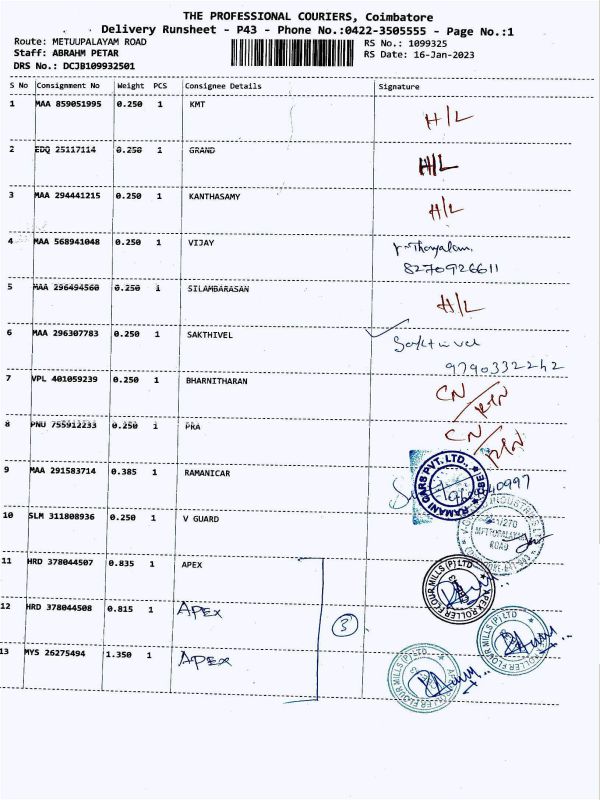 THE PROFESSIONAL COURIERS, Coimbatore
Delivery Runsheet - P43 - Phone No.:0422-3505555 - Page No.:1
Route: METUUPALAYAM ROAD RS No.: 1099325
Staff: ABRAHM PETAR RS Date: 16-Jan-2023
DRS No.: DCJB109932501
S No Consignment No Weight PCS Consignee Details Signature
1 MAA 859051995 0.250 1 KMT H/L
2 EDQ 25117114 0.250 1 GRAND H/L
3 MAA 294441215 0.250 1 KANTHASAMY H/L
4 MAA 568941048 0.250 1 VIJAY
8270926611
5 MAA 296494560 0.250 1 SILAMBARASAN H/L
6 MAA 296307783 0.250 1 SAKTHIVEL Sakthivel
9790332242
7 VPL 401059239 0.250 1 BHARNITHARAN CN/RTN
8 PNU 755912233 0.250 1 PRA CN/RTN
9 MAA 291583714 0.385 1 RAMANICAR
RAMANI CARS PVT. LTD.,
10 SLM 311808936 0.250 1 V GUARD
METTUPALAYAM
ROAD
11 HRD 378044507 0.835 1 APEX
APEX ROLLER FLOUR MILLS (P) LTD
12 HRD 378044508 0.815 1 APEX
3
ROLLER FLOUR MILLS (P) LTD
13 MYS 26275494 1.350 1 APEX
ROLLER FLOUR MILLS (P) LTD